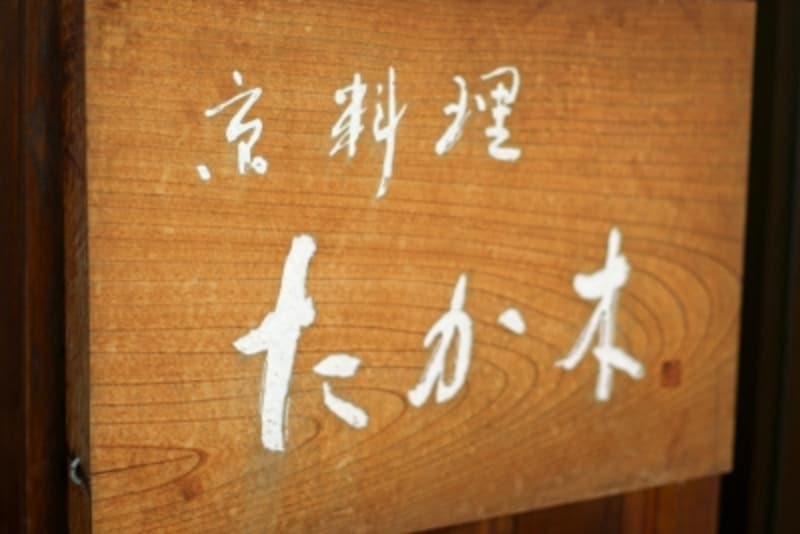 京料理
たか木